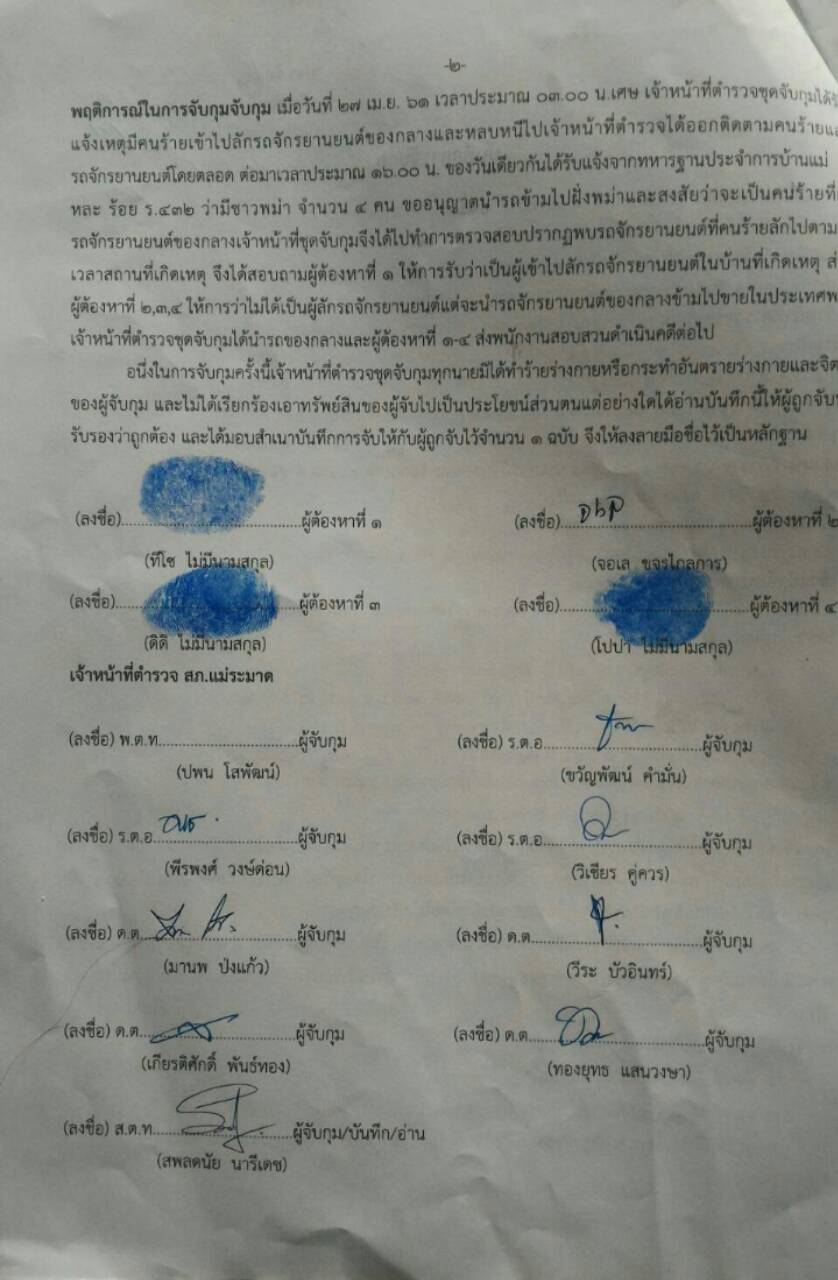 -๒-
พฤติการณ์ในการจับกุมจับกุม เมื่อวันที่ ๒๗ เม.ย. ๖๑ เวลาประมาณ ๐๓.๐๐ น.เศษ เจ้าหน้าที่ตำรวจชุดจับกุมได้
แจ้งเหตุมีคนร้ายเข้าไปลักรถจักรยานยนต์ของกลางและหลบหนีไปเจ้าหน้าที่ตำรวจได้ออกติดตามคนร้าย
รถจักรยานยนต์โดยตลอด ต่อมาเวลาประมาณ ๑๖.๐๐ น. ของวันเดียวกันได้รับแจ้งจากทหารฐานประจำการบ้านแม่
หละ ร้อย ร.๔๓๒ ว่ามีชาวพม่า จำนวน ๔ คน ขออนุญาตนำรถข้ามไปฝั่งพม่าและสงสัยว่าจะเป็นคนร้ายที่
รถจักรยานยนต์ของกลางเจ้าหน้าที่ชุดจับกุมจึงได้ไปทำการตรวจสอบปรากฏพบรถจักรยานยนต์ที่คนร้ายลักไปตาม
เวลาสถานที่เกิดเหตุ จึงได้สอบถามผู้ต้องหาที่ ๑ ให้การรับว่าเป็นผู้เข้าไปลักรถจักรยานยนต์ในบ้านที่เกิดเหตุ
ผู้ต้องหาที่ ๒,๓,๔ ให้การว่าไม่ได้เป็นผู้ลักรถจักรยานยนต์แต่จะนำรถจักรยานยนต์ของกลางข้ามไปขายในประเทศ
เจ้าหน้าที่ตำรวจชุดจับกุมได้นำรถของกลางและผู้ต้องหาที่ ๑-๔ ส่งพนักงานสอบสวนดำเนินคดีต่อไป
อนึ่งในการจับกุมครั้งนี้เจ้าหน้าที่ตำรวจชุดจับกุมทุกนายมิได้ทำร้ายร่างกายหรือกระทำอันตรายร่างกายและจิต
ของผู้จับกุม และไม่ได้เรียกร้องเอาทรัพย์สินของผู้จับไปเป็นประโยชน์ส่วนตนแต่อย่างใดได้อ่านบันทึกนี้ให้ผู้ถูกจับ
รับรองว่าถูกต้อง และได้มอบสำเนาบันทึกการจับให้กับผู้ถูกจับไว้จำนวน ๑ ฉบับ จึงให้ลงลายมือชื่อไว้เป็นหลักฐาน
(ลงชื่อ)........................................ผู้ต้องหาที่ ๑ (ลงชื่อ)........................................ผู้ต้องหาที่ ๒
(ทีโซ ไม่มีนามสกุล) (จอเล ขจรไกลการ)
(ลงชื่อ)........................................ผู้ต้องหาที่ ๓ (ลงชื่อ)........................................ผู้ต้องหาที่ ๔
(ดิดิ ไม่มีนามสกุล) (โปปา ไม่มีนามสกุล)
เจ้าหน้าที่ตำรวจ สภ.แม่ระมาด
(ลงชื่อ) พ.ต.ท..............................ผู้จับกุม (ลงชื่อ) ร.ต.อ..............................ผู้จับกุม
(ปพน โสพัฒน์) (ขวัญพัฒน์ คำมั่น)
(ลงชื่อ) ร.ต.อ..............................ผู้จับกุม (ลงชื่อ) ร.ต.อ..............................ผู้จับกุม
(พีรพงศ์ วงษ์ด่อน) (วิเชียร คู่ควร)
(ลงชื่อ) ด.ต..............................ผู้จับกุม (ลงชื่อ) ด.ต..............................ผู้จับกุม
(มานพ ป่งแก้ว) (วีระ บัวอินทร์)
(ลงชื่อ) ด.ต..............................ผู้จับกุม (ลงชื่อ) ด.ต..............................ผู้จับกุม
(เกียรติศักดิ์ พันธ์ทอง) (ทองยุทธ แสนวงษา)
(ลงชื่อ) ส.ต.ท..............................ผู้จับกุม/บันทึก/อ่าน
(สพลดนัย นารีเดช)